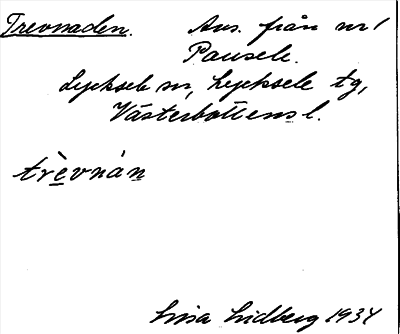 Trevnaden. Avs. från nr 1
Pausele.
Lycksele sn, Lycksele tg,
Västerbottens l.
trèvnán
Lisa Lidberg 1934